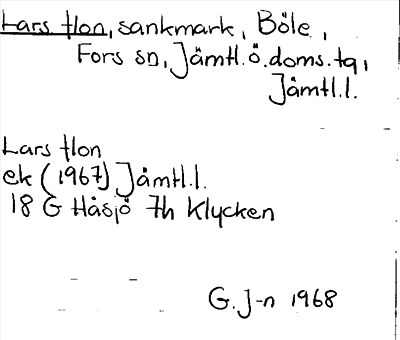 Lars flon, sankmark, Böle,
Fors sn, Jämtl. ö. doms. tg,
Jämtl. l.
Lars flon
ek (1967) Jämtl. l.
18 G Håsjö 7h Klycken
G. J-n 1968